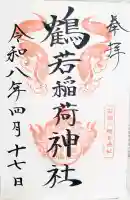 奉拝
鶴若稲荷神社
令和八年四月十七日